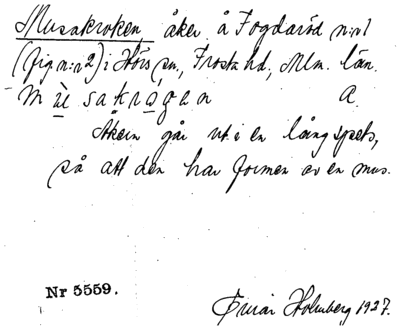 Musakroken, åker å Fogdaröd n:r 1
(fig n:r 2) i Hörs sn., Frosta hd, Mlm. län.
A.
Åkern går ut i en lång spets,
så att den har formen av en mus.
Nr 5559.
Holmberg 1927.